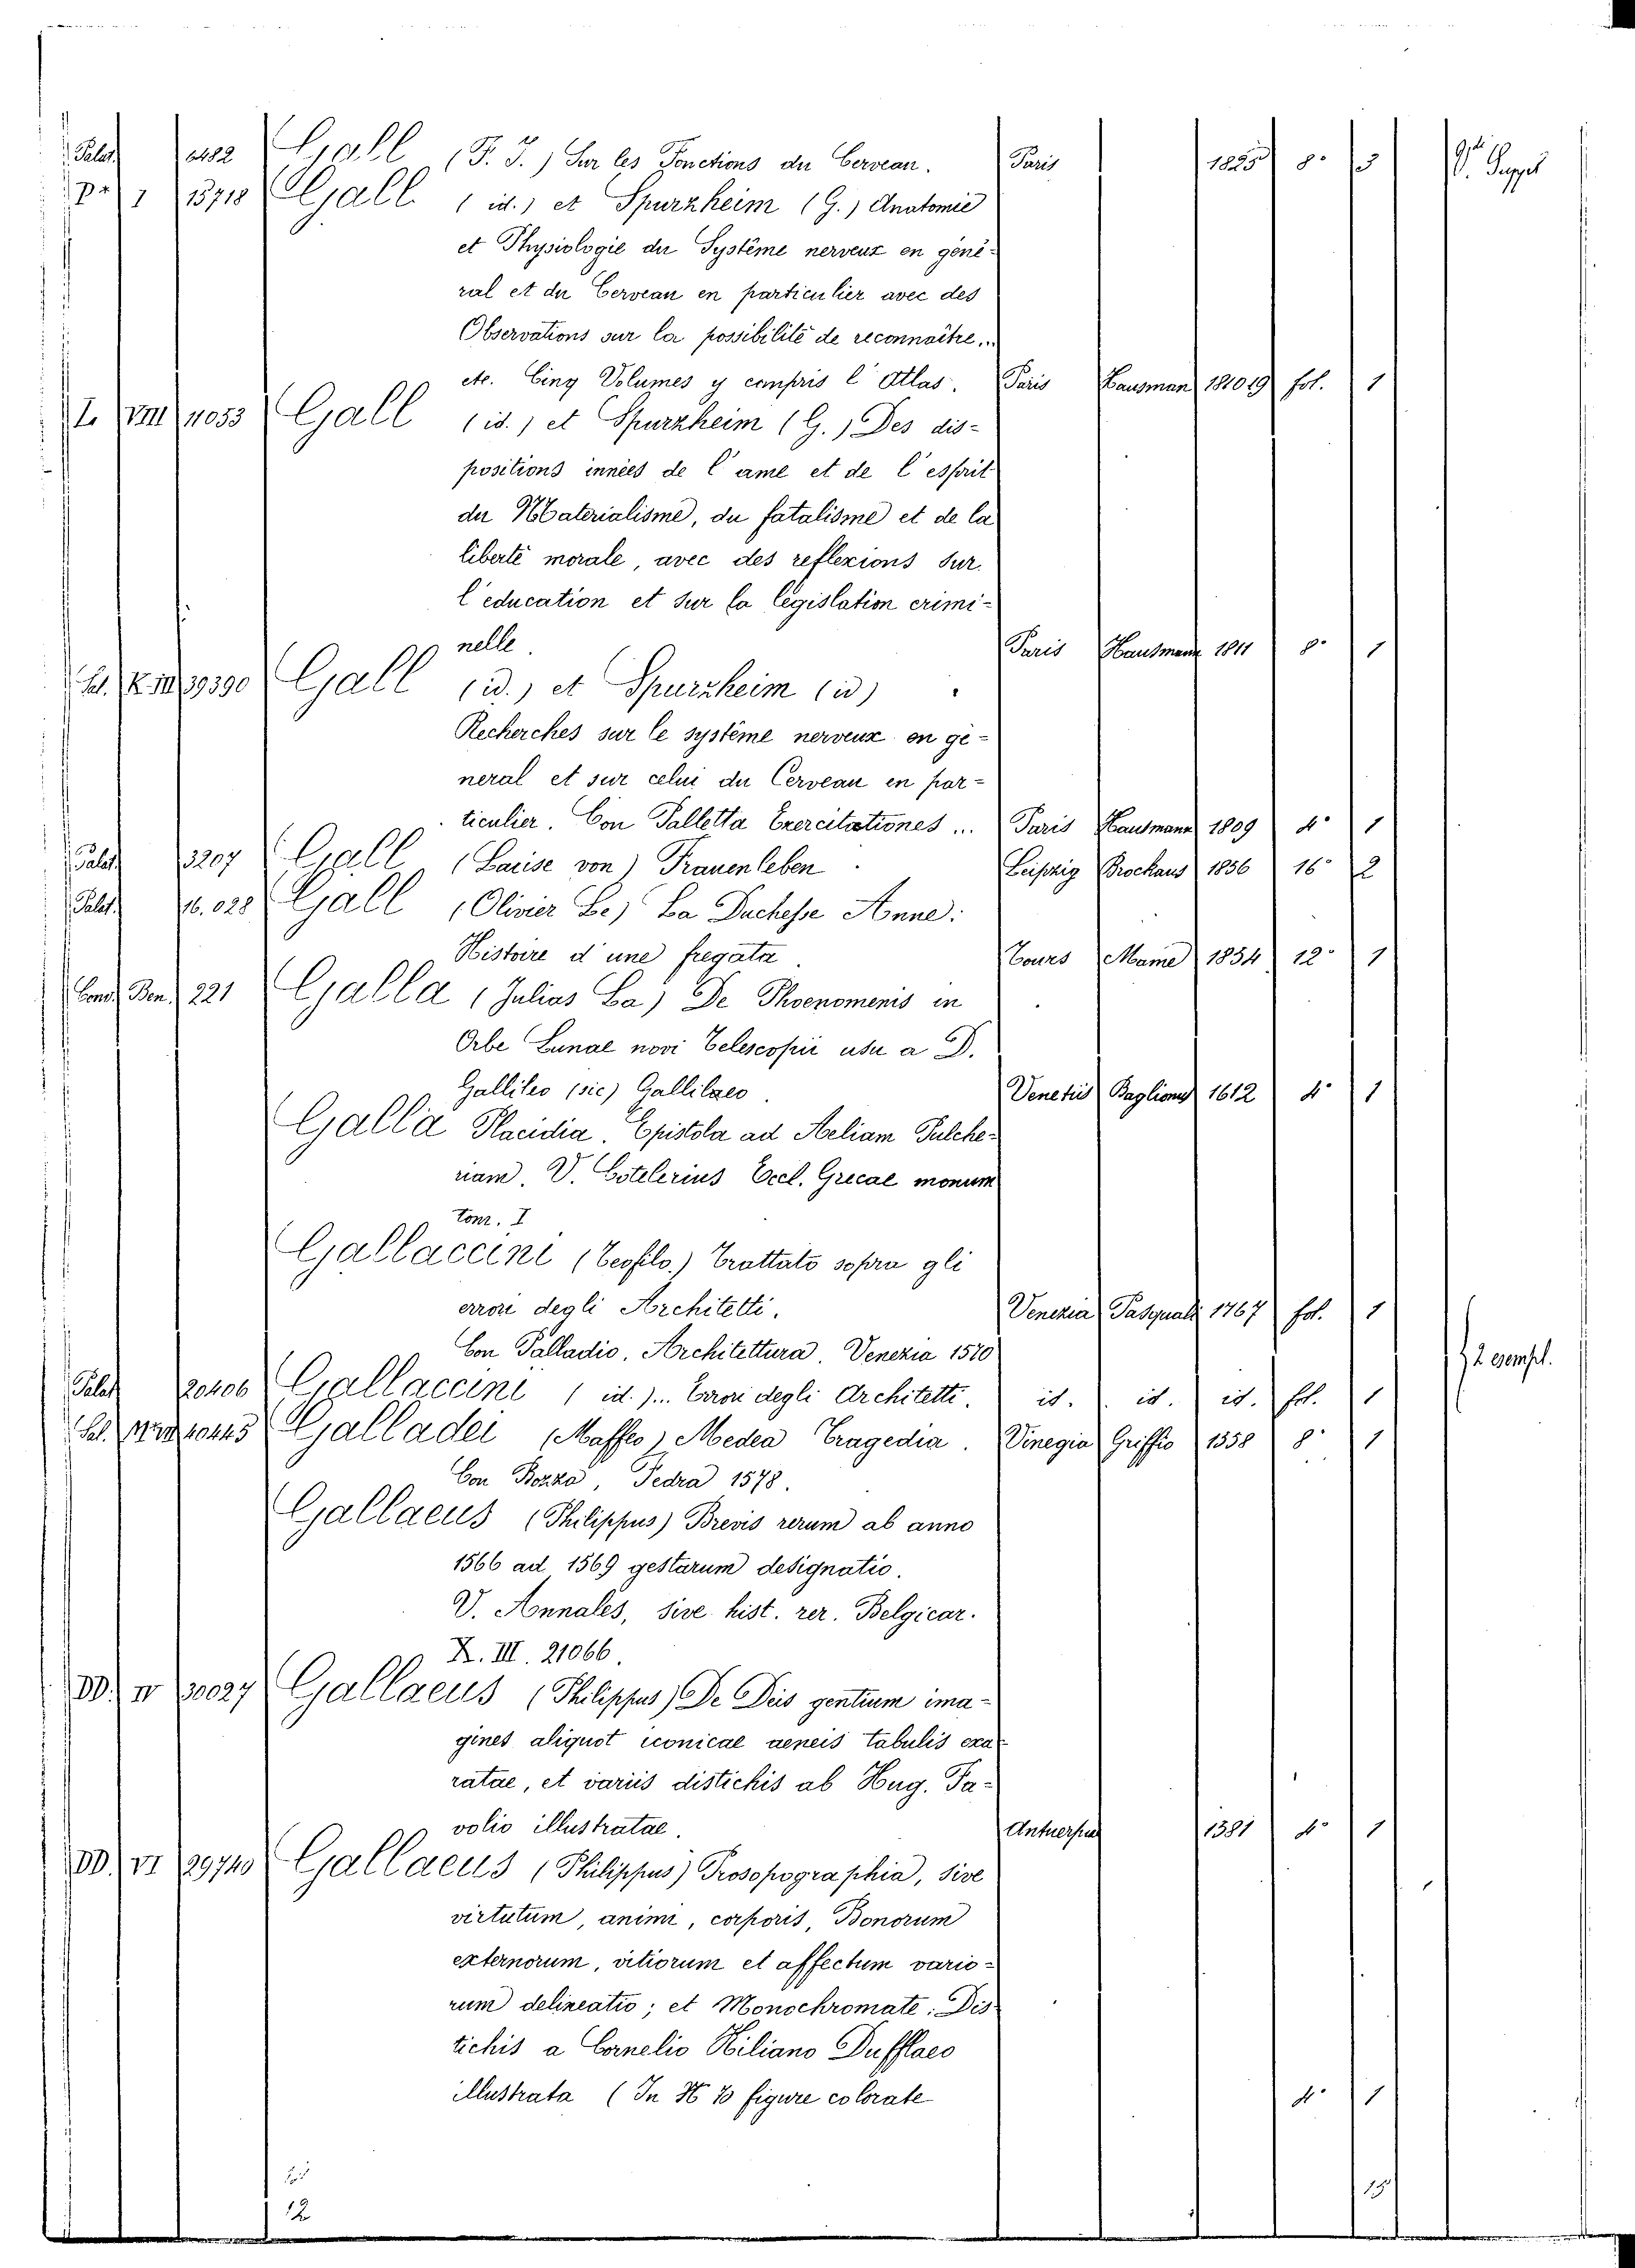 Palat. 6482 Gall (F. J.) Sur les Fonctions du Cerveau. Paris 1825 8° 3 V. Suppl
P 1 15718 Gall (id.) et Spurzheim (G.) Anatomie
et Physiologie du Système nerveux en géné-
ral et du Cerveau en particulier avec des
Observations sur la possibilité de reconnaître,..
etc. Cinq Volumes y compris l'Atlas. Paris Hausman 181019 fol. 1
L. VIII 11053 Gall (id.) et Spurzheim (G.) Des dis-
positions innées de l'ame et de l'esprit
du Materialisme, du fatalisme et de la
liberté morale, avec des reflexions sur
l'education et sur la législation crimi-
nelle. Paris Hausmann 1811 8° 1
Sel. K. III 39390 Gall (id.) et Spurzheim (id)
Recherches sur le système nerveux en ge-
neral et sur celui du Cerveau en par-
ticulier. Con Palletta Exercitationes ... Paris Hausmann 1809 4° 1
Palat. 13207 Gall (Louise von) Frauenleben Leipzig Brockaus 1856 16° 2
Palat. 16.028 Gall (Olivier Le) La Duchesse Anne:
Histoire d'une fregata. Tours Mame 1854 12° 1
Cond. Ben. 221 Galla (Julius La) De Phoenomenis in
Orbe Lunae novi Telescopii usu a D.
Gallileo (sic) Gallilaeo. Venetiis Baglionus 1612 4° 1
Galla Placidia. Epistola ad Aeliam Pulche-
riam. V. Cotelerius Eccl. Grecae monum
tom. I
Gallaccini (Teofilo.) Trattato sopra gli
errori degli Architetti. Venezia Pasquali 1767 fol. 1
Con Palladio, Architettura. Venezia 1570
Palat 20406 Gallaccini (id.)... Errori degli Architetti. id. id. id. fol. 1 2 esempl.
Sel. 40445 Galladei (Maffeo) Medea Tragedia. Vinegia Griffio 1558 8° 1
Con Bozza, Fedra 1578.
Gallaeus (Philippus) Brevis rerum ab anno
1566 ad 1569 gestarum designatio.
V. Annales, sive hist. rer. Belgicar.
X. III. 21066.
DD. IV 30027 Gallaeus (Philippus) De Deis gentium ima-
gines aliquot iconicae aeneis tabulis exa-
ratae, et variis distichis ab Hug. Fa-
volio illustratae. Antuerpiae 1581 4° 1
DD. VI 29740 Gallaeus (Philippus) Prosopographia, sive
virtutum, animi, corporis, Bonorum
externorum, vitiorum et affectum vario-
rum delineatio; et Monochromate: Dis-
tichis a Cornelio Kiliano Dufflaeo
illustrata (In N° 70 figure colorate 4° 1
12 15